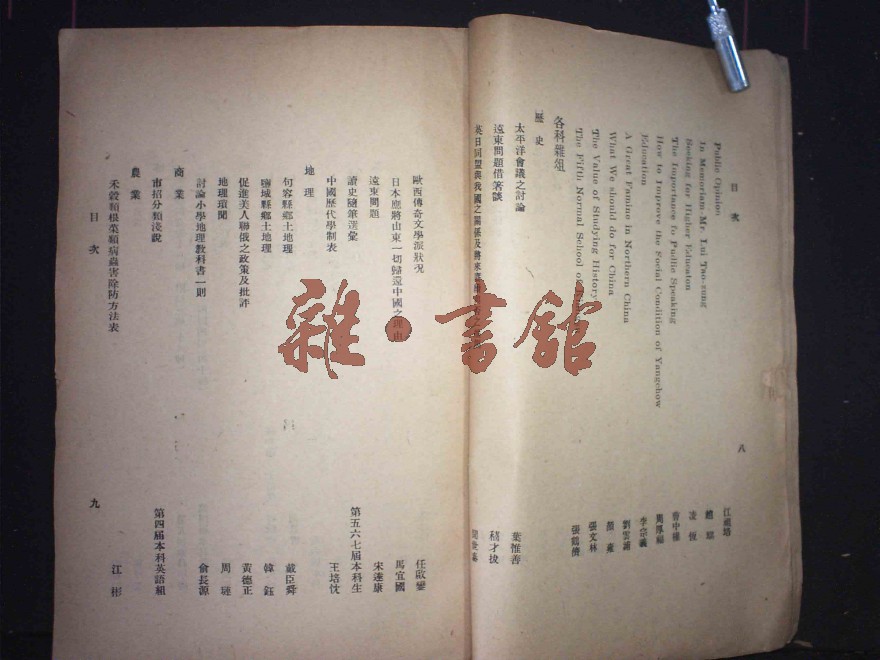 目次
八
Public Opinion 江祖培
In Memoriam Mr. Lui Tao-sung
Seeking for Higher Educaton 凌恆
The Importance to Pudlic Speaking 曹中權
How to Improve the Social Condition of Yangchow 周厚福
Education 李宗義
A Great Famine in Northern China 劉雲浦
What We should do for China 薙
The Value of Studying History 張文林
The Fifth Normal School of 張鶴儕
各科雜俎
歷史
太平洋會議之討論 葉惟善
遠東問題借箸談 才拔
英日同盟與我國之關係及將來
歐西傳奇文學派狀況 任啟鑾
日本應將山東一切歸還中國之理由 馬宜國
遠東問題 宋蓮康
讀史隨筆選彙 第五六七屆本科生
中國歷代學制表 王培忱
地理
句容縣鄉土地理 戴臣舜
鹽城縣鄉土地理 韓鈺
促進美人聯俄之政策及批評 黃德正
地理瑣聞 周璉
討論小學地理教科書一則 俞長源
商業
市招分類淺說 第四屆本科英語組
農業
禾穀類根菜類病蟲害除防方法表 江彬
目次
九
雜·書館